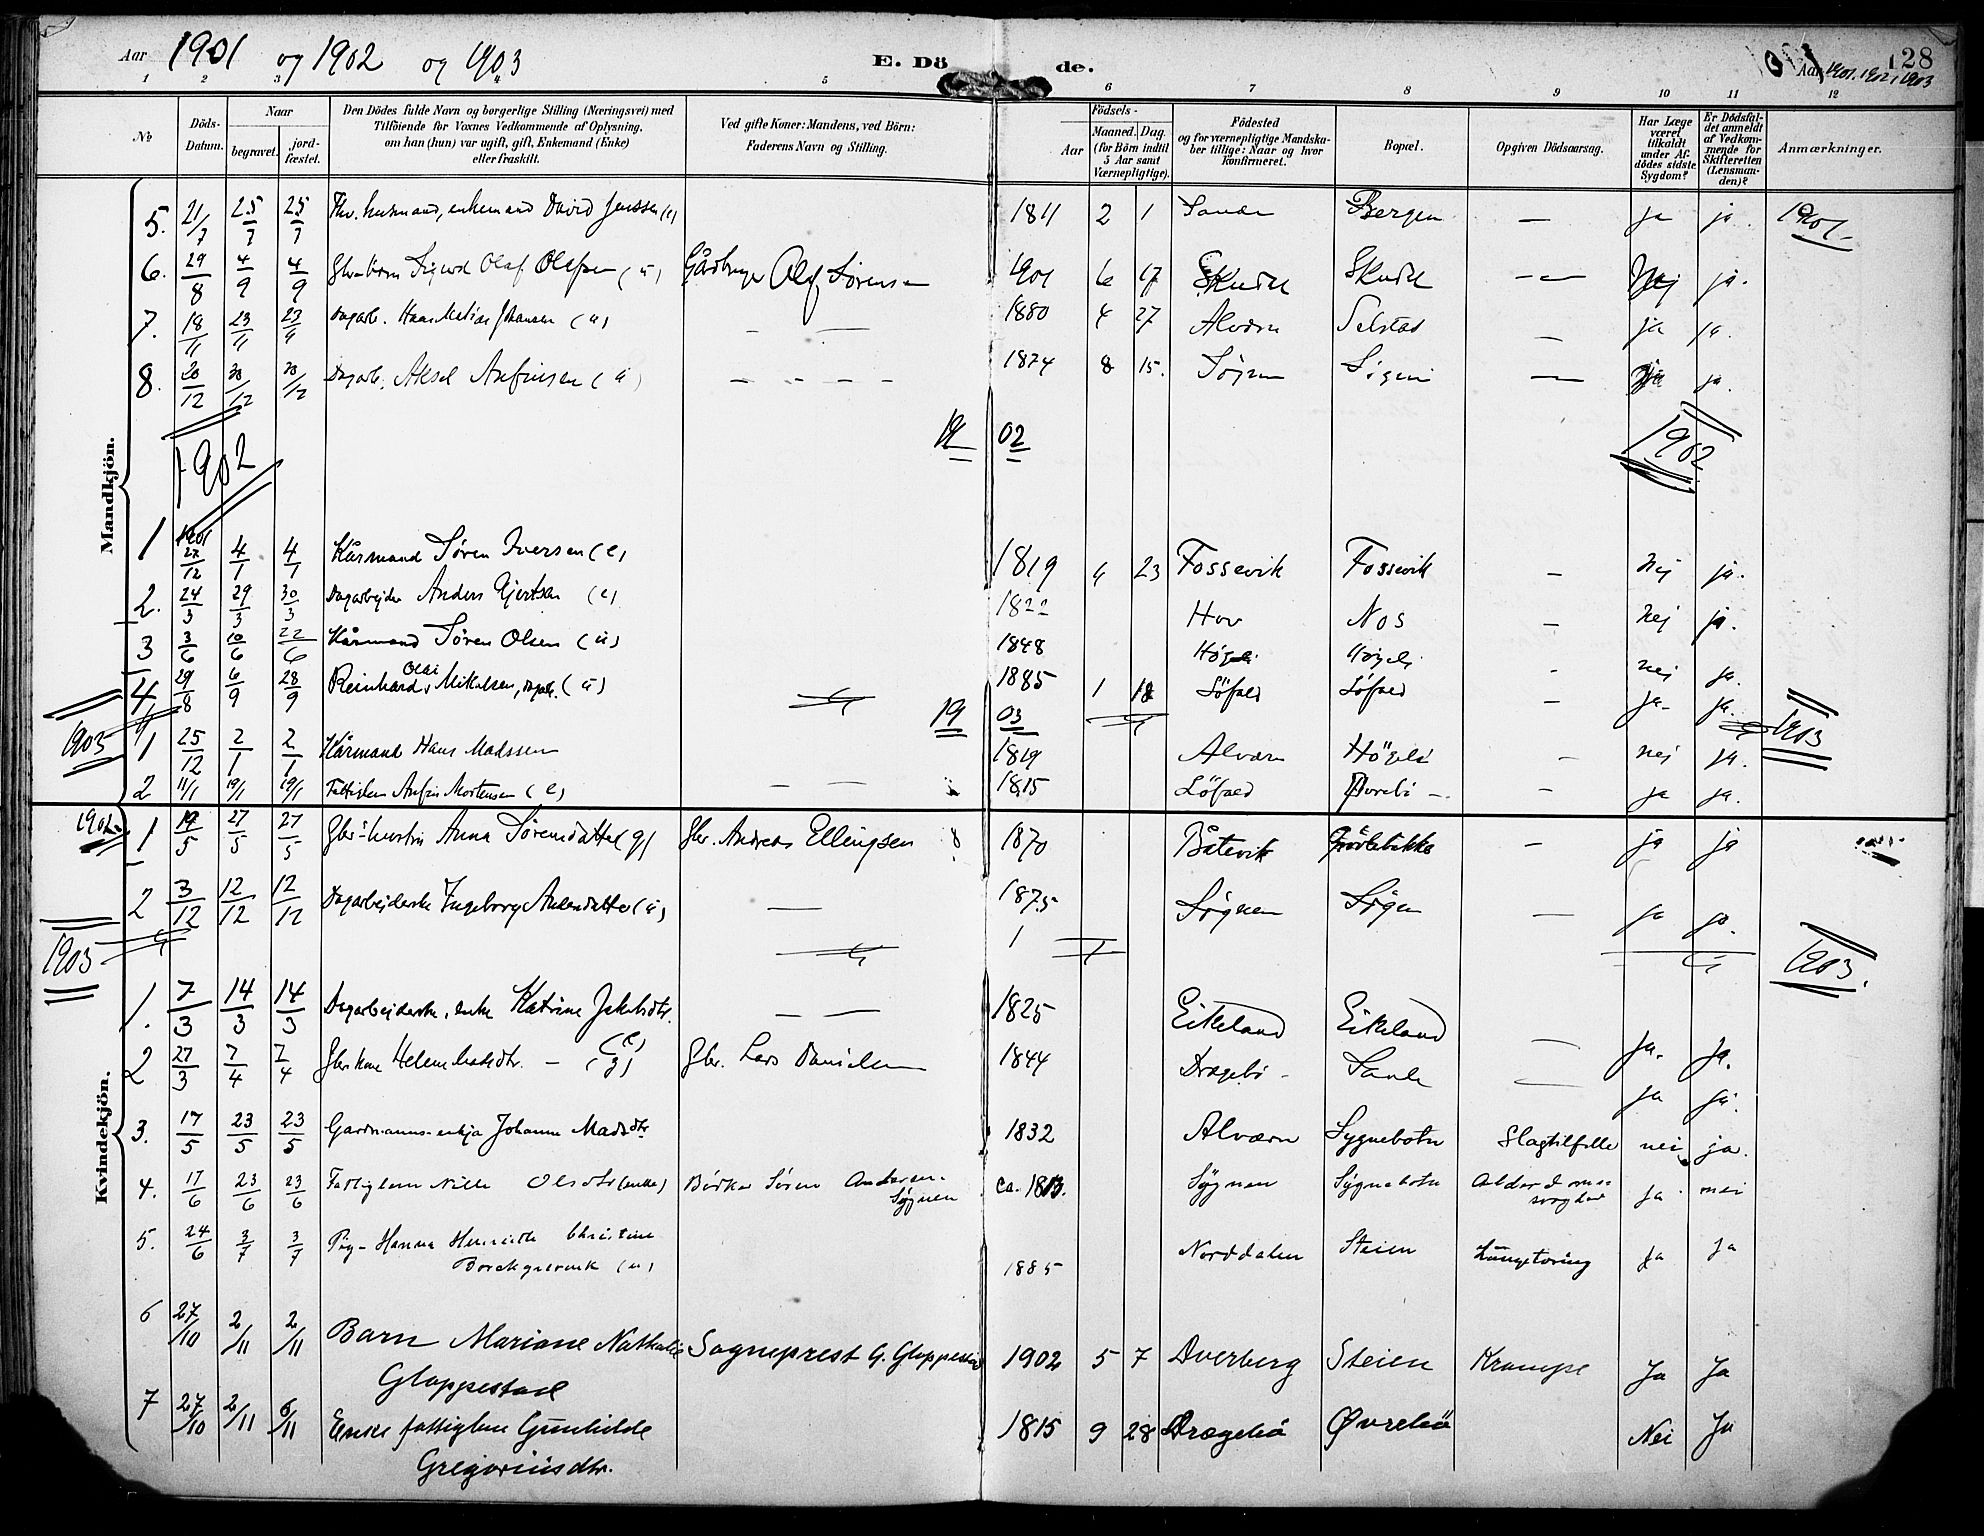 Aar 1901 og 1902 og 1903 E. Dö de. Aar 1901, 1902, 1903 128
1 2 3 4 5 6 7 8 9 10 11 12
No Döds-Datum. Naar begravet. jord-fæstet. Den Dödes fulde Navn og borgerlige Stilling (Næringsvei) med Tilföiende for Voxnes Vedkommende af Oplysning, om han (hun) var ugift, gift, Enkemand (Enke) eller fraskilt. Ved gifte Koner: Mandens, ved Börn: Faderens Navn og Stilling. Födsels- Aar Maaned. Dag. (for Börn indtil 5 Aar samt Værnepligtige). Födested og for værnepligtige Mandskaber tillige: Naar og hvor konfirmeret. Bopæl. Opgiven Dödsaarsag. Har Læge været tilkaldt under Afdödes sidste Sygdom? Er Dödsfaldet anmeldt af Vedkommende for Skifteretten (Lensmanden)? Anmærkninger.
Mandkjön.
5. 21/7 25/7 25/7 husmand, enkemand David Jenssen (e) 1811 2 1 Sande Bergen — ja ja 1901
6. 29/8 4/9 4/9 Sigurd Olaf Olsen (u) Gårdbruger Olaf Sørensen 1901 6 17 — nej ja.
7. 18/11 23/11 23/11 Dagarb. Hans Matias Johansen (u) — — 1880 4 27 Alværn Selstad — ja ja.
8. 20/12 30/12 30/12 Dagarb. Aksel Anfinsen (u) — — — — 1874 8 15. Søgnen Søgnen — ja ja.
1902 19 02 1902
1 1901 27/12 4/1 4/1 Kårmand Søren Iversen (e) 1819 4 23 Fossevik Fossevik — nej ja.
2. 24/3 29/3 30/3 Dagarbejder Anders Gjertsen (e) 1822 Hov Nos — nej ja.
3 3/6 10/6 22/6 Kårmand Søren Olsen (u) 1848 - nej ja.
4 29/8 6/9 28/9 Reinhard Olai Mikalsen, dagarb. (u) 1885 1 18 Løfald Løfald — ja- ja.
1903 19 03 1903
1 25/12 2/1 2/1 Kårmand Hans Madssen 1819 Alværn — nej ja.
2 11/1 19/1 19/1 Fattiglem Anfin Mortensen (e) — — 1815 Løfald — ja ja.
Kvindekjön.
1902. 1 19/5 27/5 27/5 Gbr-hustru Anna Sørensdatter (g) Gbr. Andreas Ellingsen 1870 Båtevik — ja ja
2 3/12 12/12 12/12 Dagarbejderske Ingeborg Andersdatter (u) — 1875 Søgnen Søgnen — ja ja.
1903 1903.
1. 7/3 14/3 14/3 Dagarbejderske, enke Katrine Jakobsdtr. (e) — — 1825 Eikeland Eikeland — ja. ja.
2 27/3 7/4 7/4 Gbr kone Helene — (g) Gbr. Lars Danielsen 1844 Dragebø - Sande — ja ja.
3. 17/5 23/5 23/5 Gardmanns-enkja Johanne Madsdtr. 1832 Alværn Sygnebotn Slagtilfelle nei ja.
4. 17/6 23/6 23/6 Fattiglem Nille Olsdtr (enke) Bødker Søren Andersen. Søgnen ca. 1813. Sygnen Sygnebotn Alderdomssvaghed ja nei
5. 24/6 3/7 3/7 Pig- Hanna Henriette Christine Borchgrevink (u) 1885 Norddalen Steien Lungetæring Ja Ja
6 27/10 2/11 2/11 Barn Mariane Nathalie Gloppestad Sogneprest G. Gloppestad 1902 5 7 Dverberg Steien Krampe Ja Ja
7 27/10 2/11 6/11 Enke fattiglem Gunhilde Gregoriusdtr. 1815 9 28 Drageliö Øvreliö Nei Ja